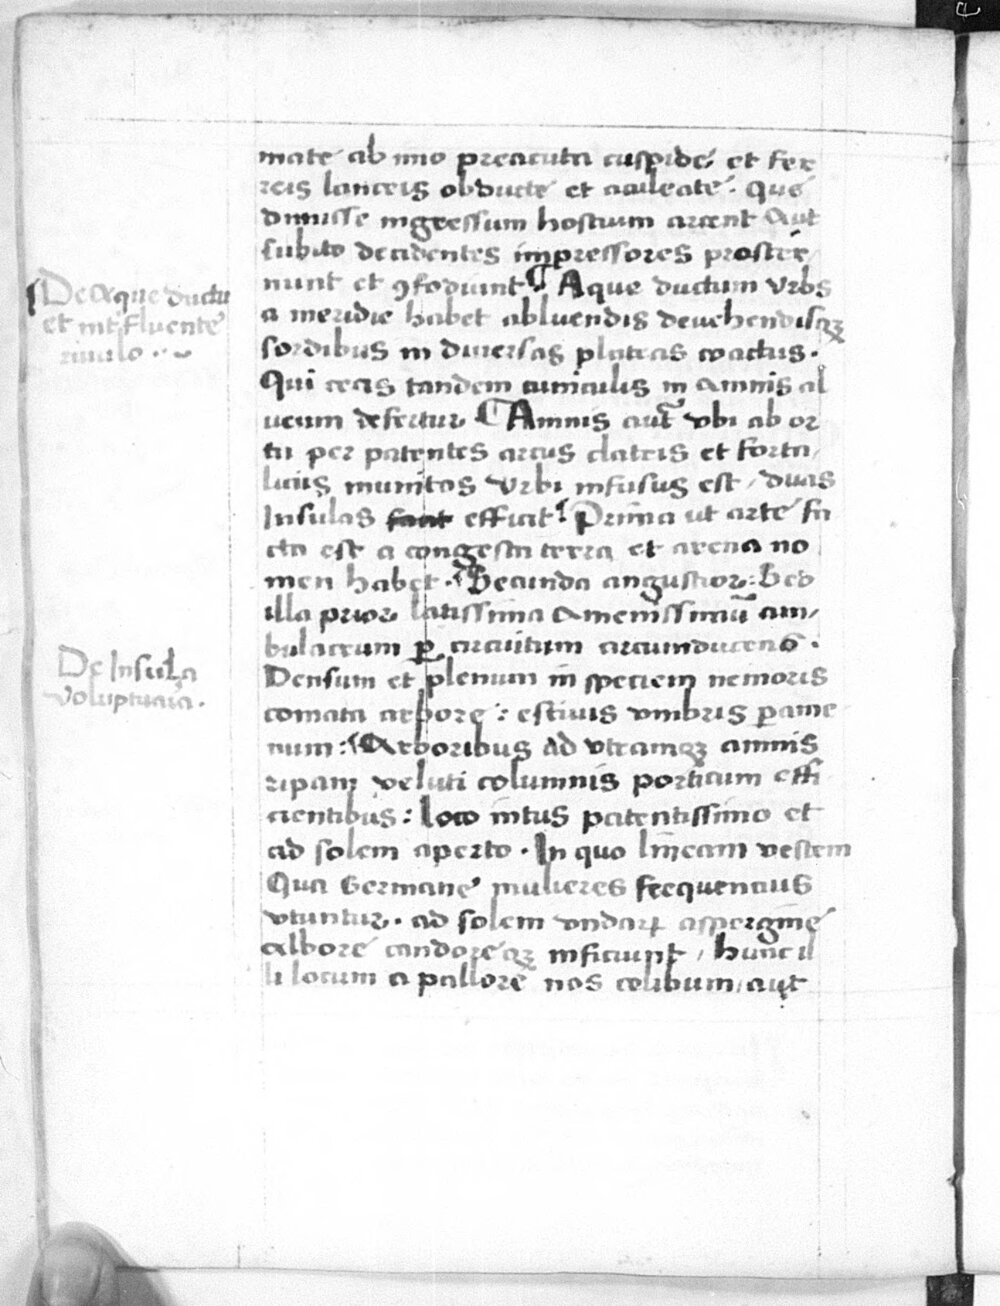 mate ab imo preacuta cuspide et fer
reis lanceis obducte et aculeate. Que
dimisse ingressum hostium arcent Aut
subito decidentes impressores proster/
nunt et ꝯfodiunt. ¶ Aque ductum Vrbs
a meridie habet abluendis deuehendisqꝫ
sordibus in diuersas plateas coactus.
Qui cecis tandem cuniculis in Amnis al
ueum defertur ¶ Amnis aut̄ vbi ab or
tu per patentes arcus clatris et forta/
liciis munitos Vrbi infusus est, duas
Insulas efficit. Prima ut arte fa
cta est a congesta terra et arena no
men habet. Secunda angustior: Sed
illa prior latissima Amenissimū am/
bulacrum ꝑ circuitum circumducens.
Densum et plenum in speciem nemoris
comata arbore: estiuis vmbris ꝑame
num: Arboribus ad vtramqꝫ amnis
ripam veluti columnis porticum effi
cientibus: loco intus patentissimo et
ad solem aperto. In quo lineam vestem
Qua Germane mulieres frequencius
vtuntur. ad solem vndaꝝ aspergine
albore candoreqꝫ inficiunt, hunc il
li locum a pallore nos celibum, aut
¶ De Aque ductu
et int'fluente
riuulo.
De Insula
voluptuaria.